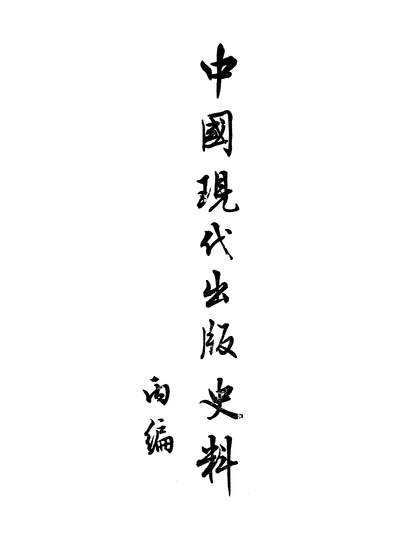 中國現代出版史料
丙編